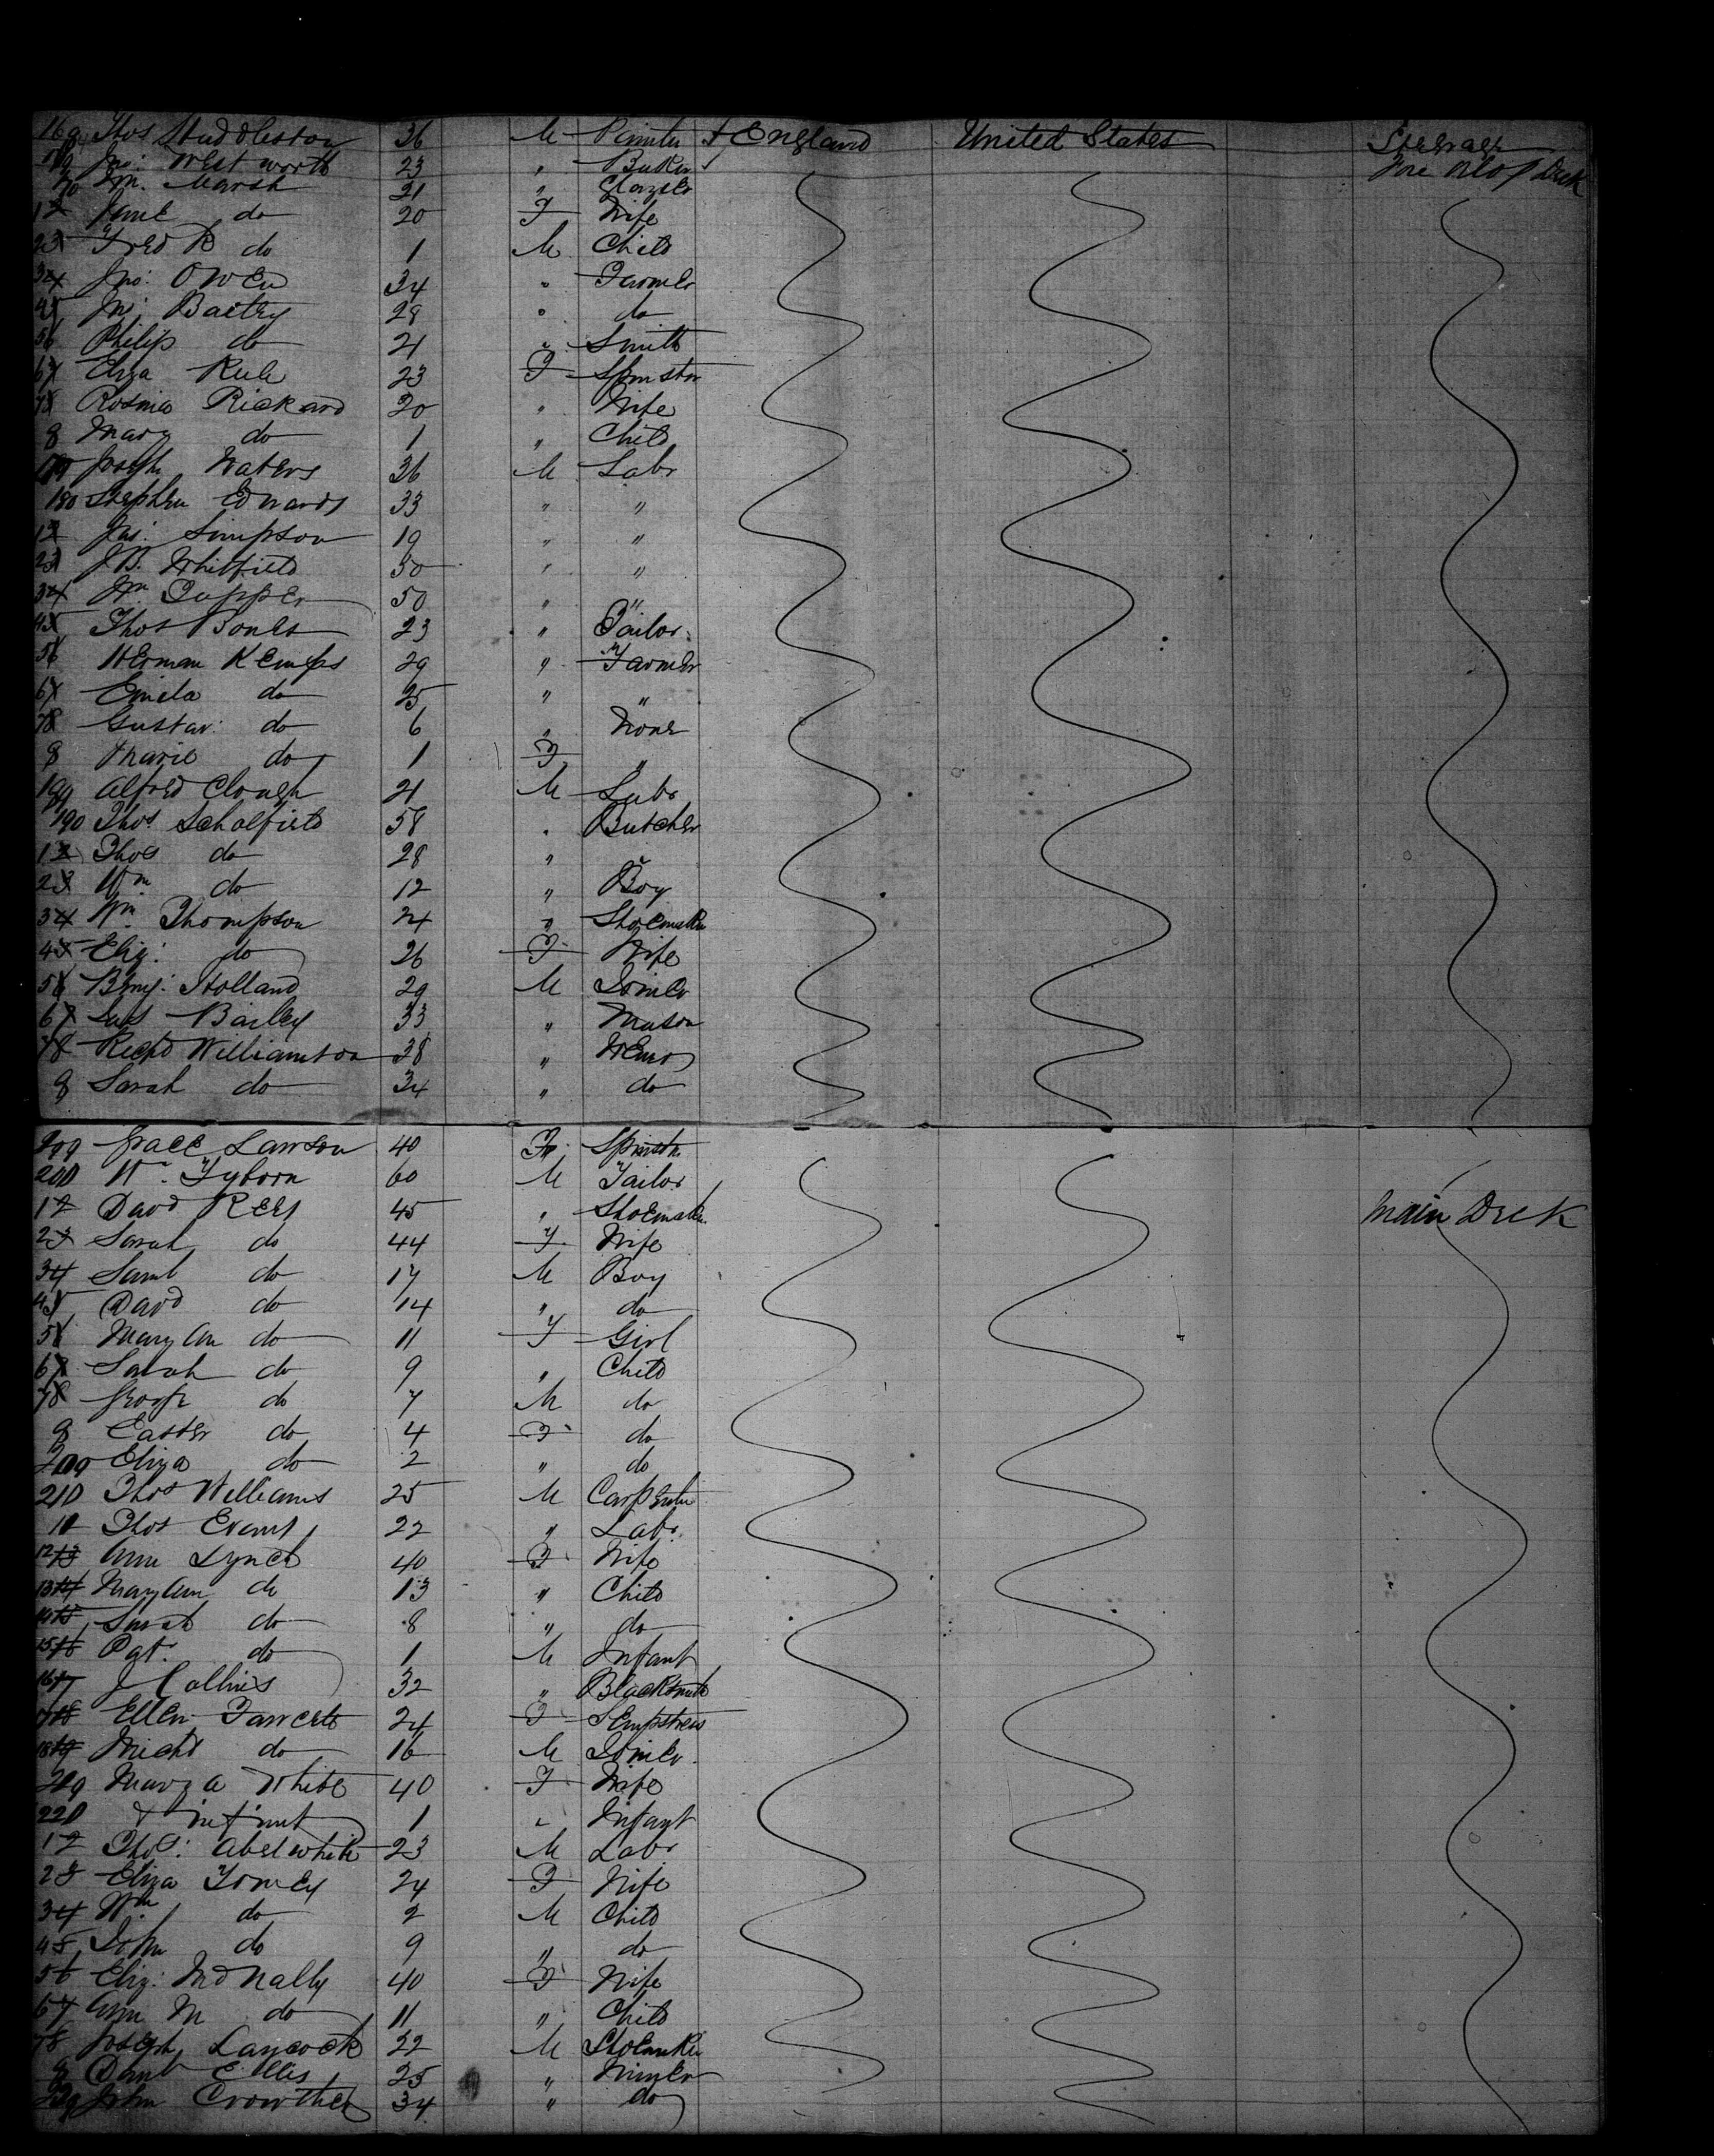 Thos Huddleston 36 M Painter England United States Steerage
Jno: Westworth 23 " Baker Fore Orlop Deck
Marsh 21 " Glazier
Jane do 20 F Wife
Fred R do 1 M Child
Jno: Owen 34 " Farmer
28 " do
Philip do 21 " Smith
Eliza Rule 23 F Spinster
Rosina Rickard 20 " Wife
8 Mary do 1 " Child
Joseph Waters 36 M Labr
180 Stephen Edwards 33 " "
Jas: Simpson 19 " "
J. B. Whitfield 30 " "
Wm Tupper 50 " "
Thos Bones 23 " Tailor
Herman Kemps 29 " Farmer
Emila do 25 " "
Gustav: do 6 " None
8 Marie do 1 F "
Alfred Clough 21 M Labr
190 Thos Scholfield 58 " Butcher
Thos do 28 "
Wm do 12 " Boy
Wm Thompson 24 " Shoemaker
Eliz: do 26 F Wife
Benj: Holland 29 M Joiner
Bailey 33 " Mason
Richd Williamson 38 "
8 Sarah do 34 " do
Grace Lawson 40 F Spinster
200 Wm Tyborn 60 M Tailor
David Rees 45 " Shoemaker Main Deck
Sarah do 44 F Wife
Saml do 17 M Boy
David do 14 " do
Mary An do 11 F Girl
Sarah do 9 " Child
George do 7 M do
Easter do 4 F do
Eliza do 2 " do
210 Thos Williams 25 M Carpenter
Thos Evans 22 " Labr
12 Ann Lynch 40 F Wife
13 Mary Ann do 13 " Child
14 Sarah do 8 " do
15 Pat: do 1 M Infant
16 J Collins 32 " Blacksmith
Ellen Fawcett 24 F Sempstress
18 Michl do 16 M Joiner
Mary A White 40 F Wife
220 & infant 1 " Infant
Thos: Abelwhite 23 M Labr
Eliza Tomey 24 F Wife
Wm do 2 M Child
John do 9 " do
Eliz: McNally 40 F Wife
Ann M do 11 " Child
Joseph Laycock 22 M Shoemaker
Danl Ellis 25 " Miner
John Crowther 34 " do